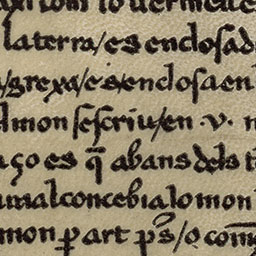 axi com lo vermell e
la terra/es enclosa d
/grexa/es enclosa en
l mon sescriu/en .v. n
aço es q̄ abans dels t
ual concebia lo mon
mon ꝑ art